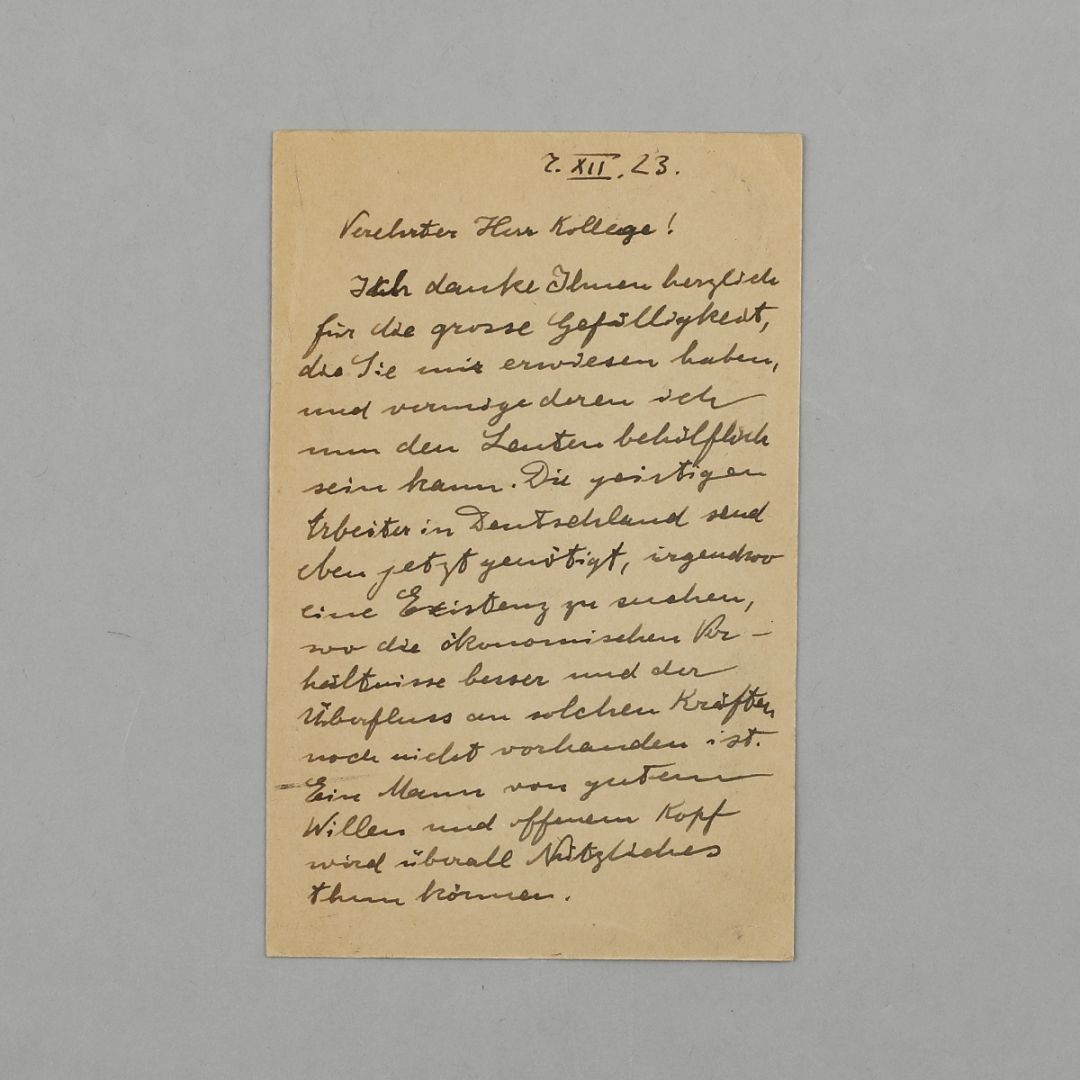 7. XII. 23.
Verehrter Herr Kollege!
Ich danke Ihnen herzlich
für die grosse Gefälligkeit,
die Sie mir erwiesen haben,
und vermöge deren ich
nun den Leuten behülflich
sein kann. Die geistigen
Arbeiter in Deutschland sind
eben jetzt genötigt, irgendwo
eine Existenz zu suchen,
wo die ökonomischen Ver-
hältnisse besser und der
Überfluss an solchen Kräften
noch nicht vorhanden ist.
Ein Mann von gutem
Willen und offenem Kopf
wird überall Nützliches
thun können.